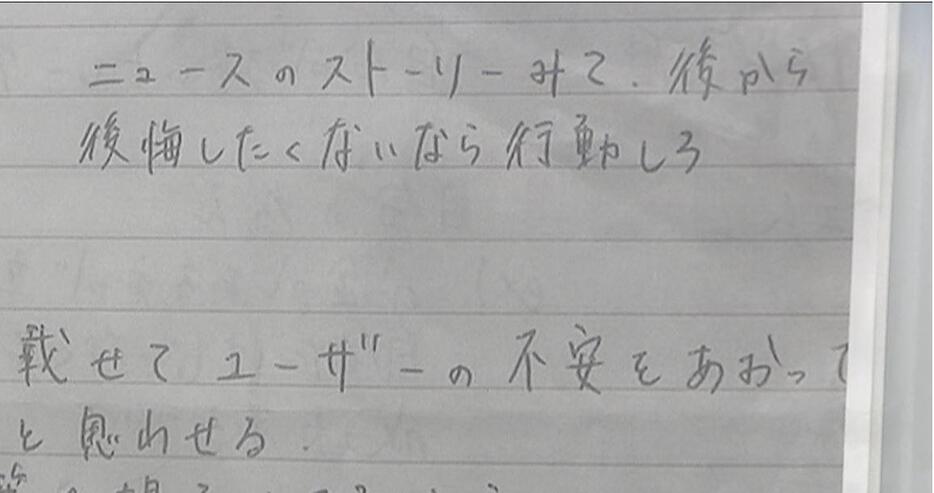 ニュースのストーリーみて．後から
後悔したくないなら行動しろ
載せてユーザーの不安をあおって
と思わせる．